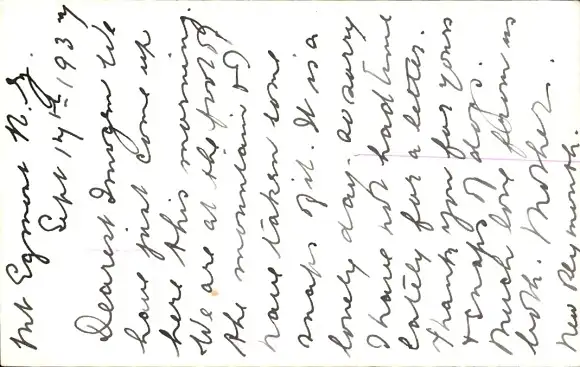 Mt Egmont N.Z.
Sept 17th 1937
Dearest Imogen We
have just come up
here this morning.
We are at the foot of
the mountain &
have taken some
snaps of it. It is a
lovely day. So sorry
I have not had time
lately for a letter.
Thank you for yours
& snaps of dogs.
Much love from us
both. Mother.
New Plymouth.